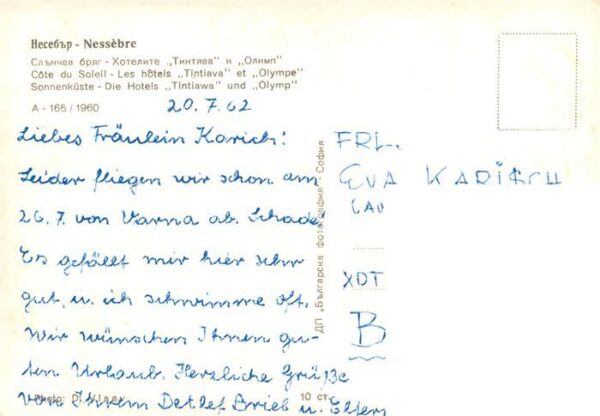 Несебър - Nessèbre
Слънчев бряг - Хотелите „Тинтява" и „Олимп"
Côte du Soleil - Les hôtels „Tintiava" et „Olympe"
Sonnenküste - Die Hotels „Tintiawa" und „Olymp"
A - 165 / 1960
20.7.62
Liebes Fräulein Karich!
Leider fliegen wir schon am
26.7. von Varna ab. Schade!
Es gefällt mir hier sehr
gut, u. ich schwimme oft.
Wir wünschen Ihnen gu-
ten Urlaub. Herzliche Grüße
von Ihrem Detlef Brieb u. Eltern
Photo: D.
10 ст.
ДП „Българска фотография" София
FRL.
EVA
XOT
B